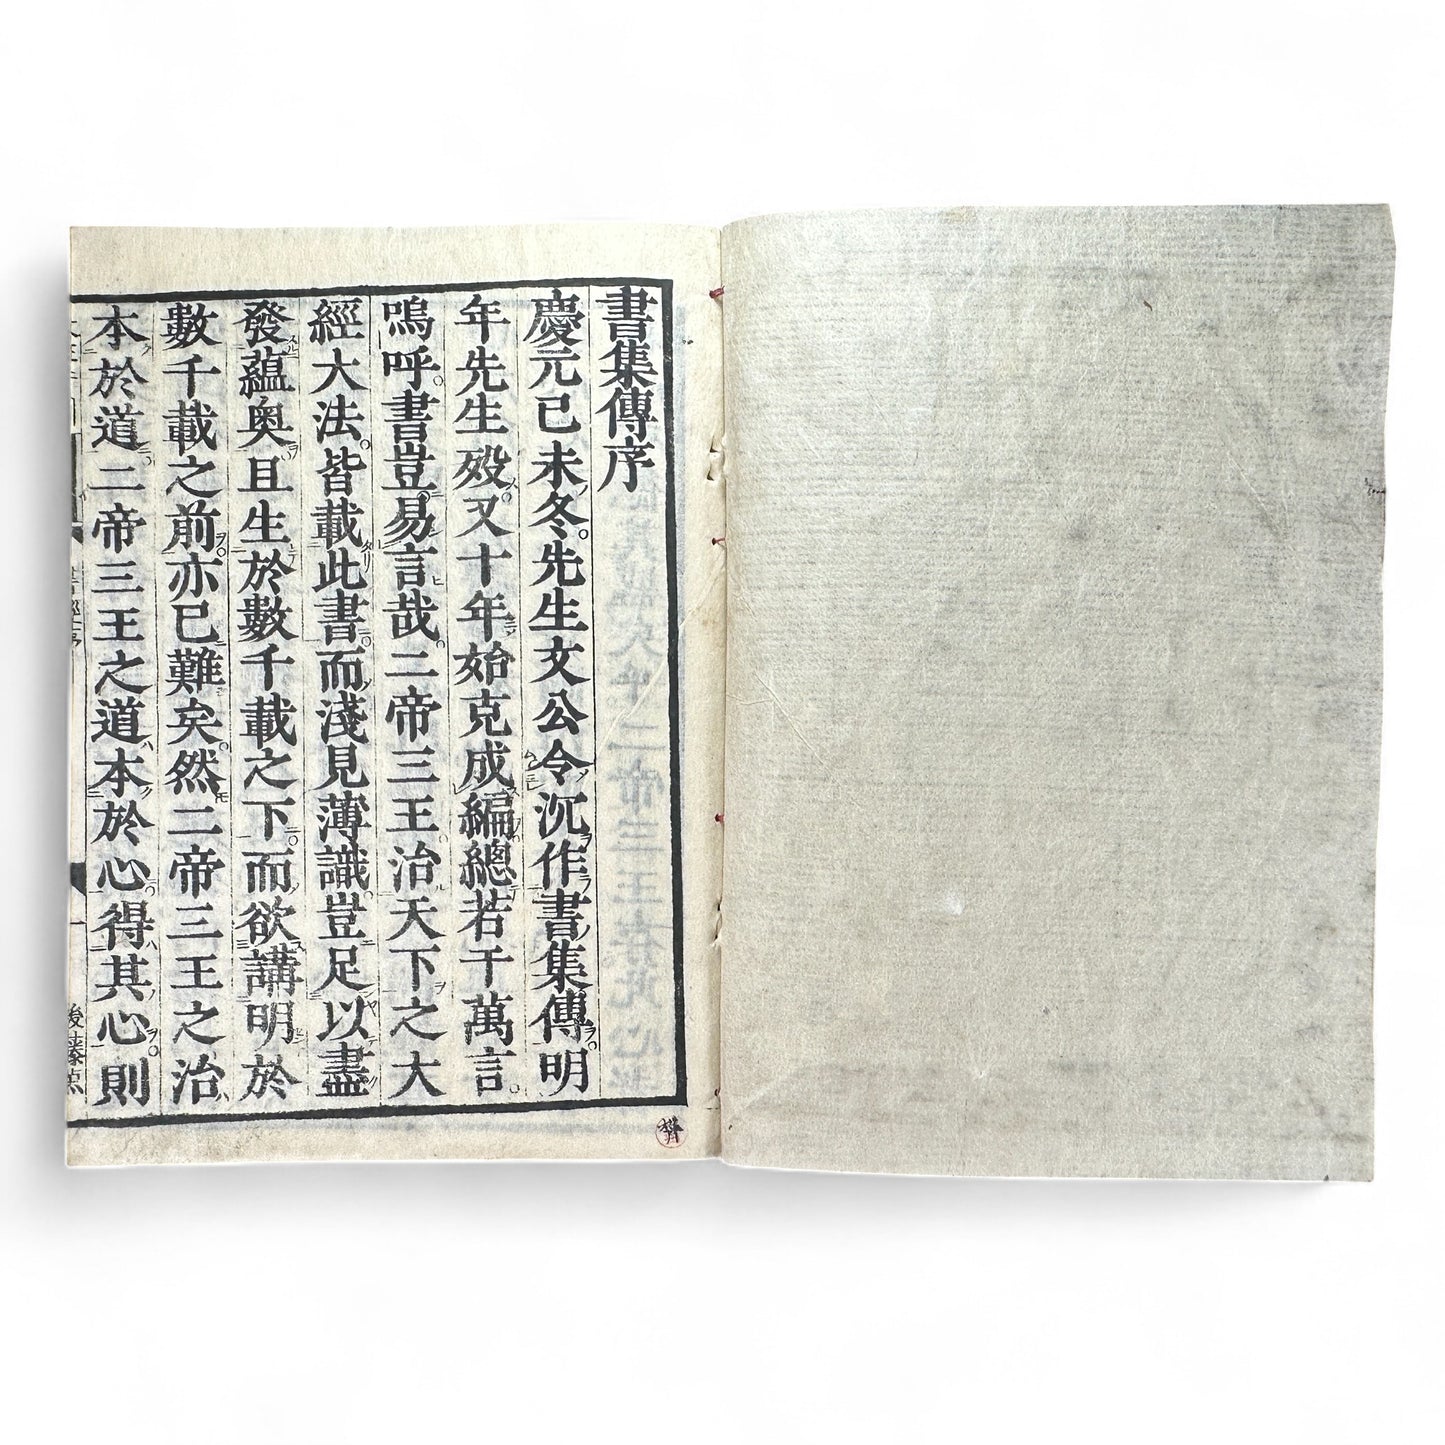 書集傳序
慶元已未冬先生文公令沉作書集傳明
年先生歿又十年始克成編總若干萬言
嗚呼書豈易言哉二帝三王治天下之大
經大法皆載此書而淺見薄識豈足以盡
發蘊奥且生於數千載之下而欲講明於
數千載之前亦已難矣然二帝三王之治
本於道二帝三王之道本於心得其心則
書經序
一
後藤点